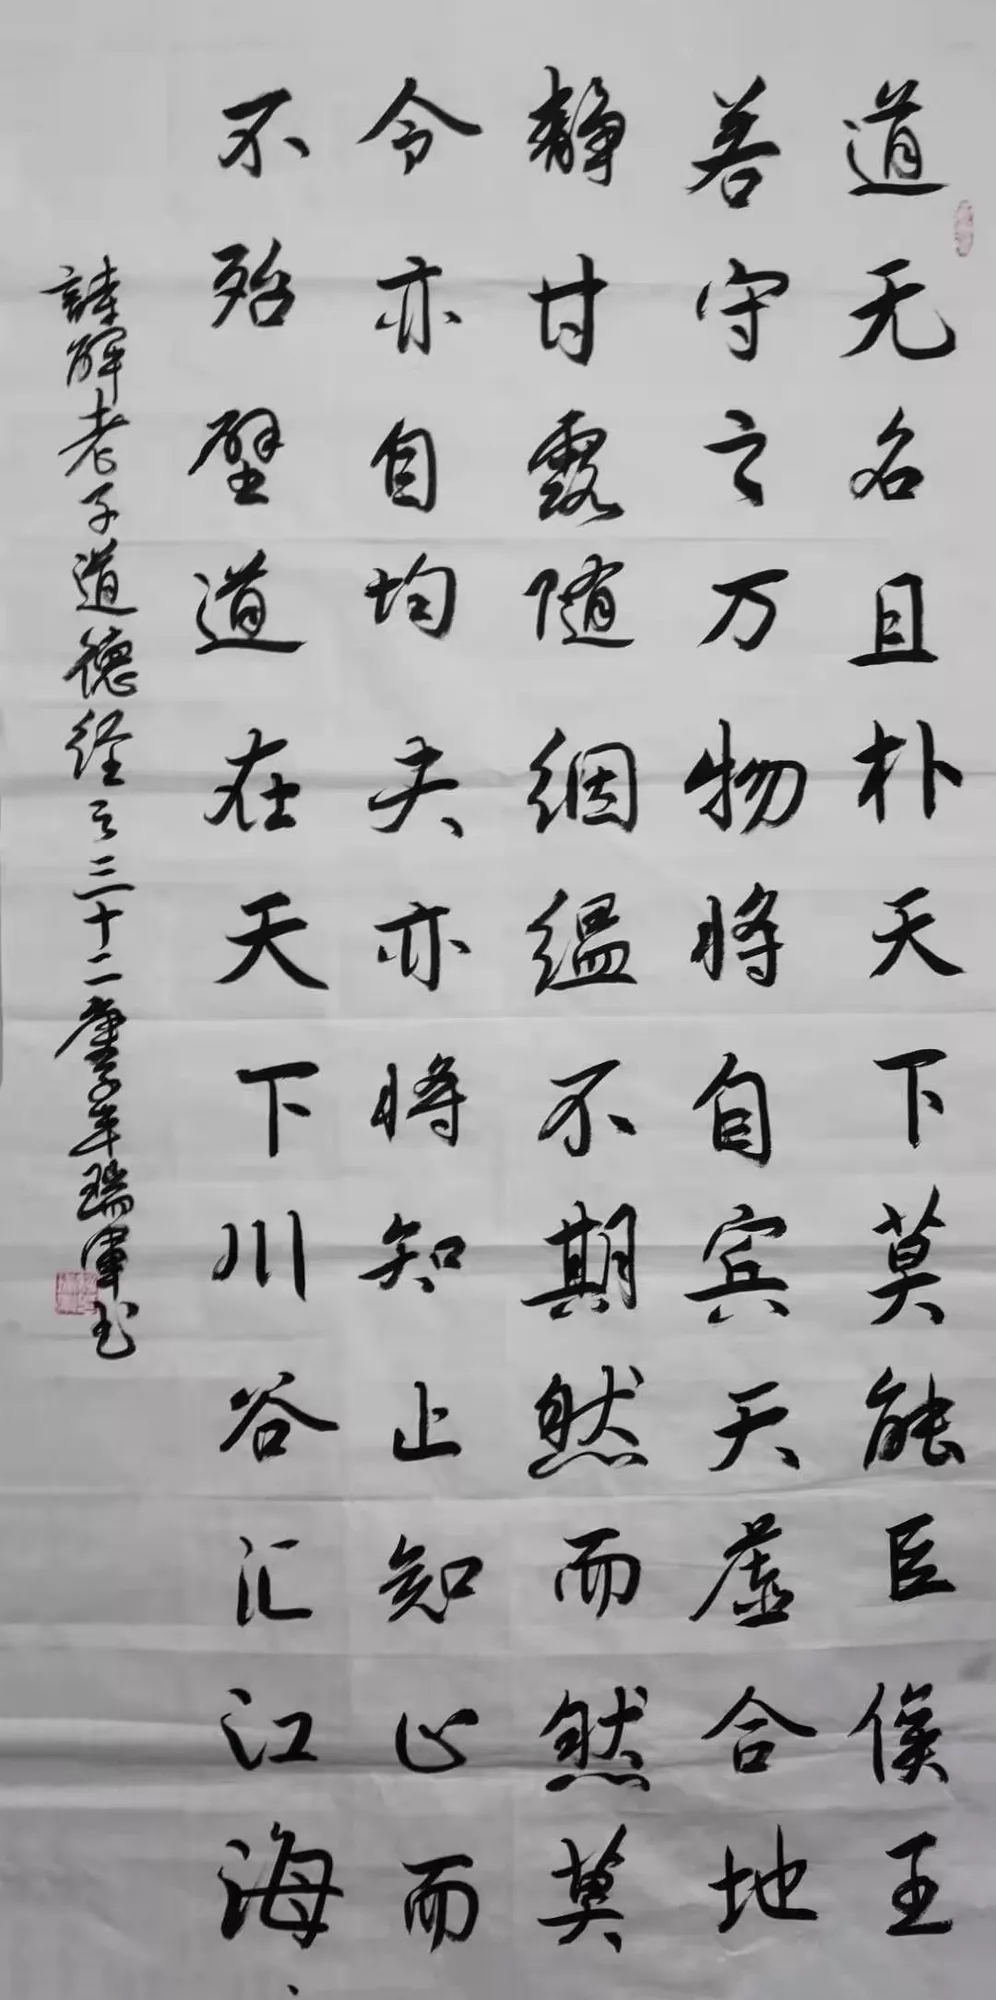 道无名且朴天下莫能臣侯王
若守之万物将自宾天虚合地
静甘露随絪缊不期然而然莫
令亦自均夫亦将知止知止而
不殆壁道在天下川谷汇江海
诗解老子道德经之三十二庚子年瑞军书